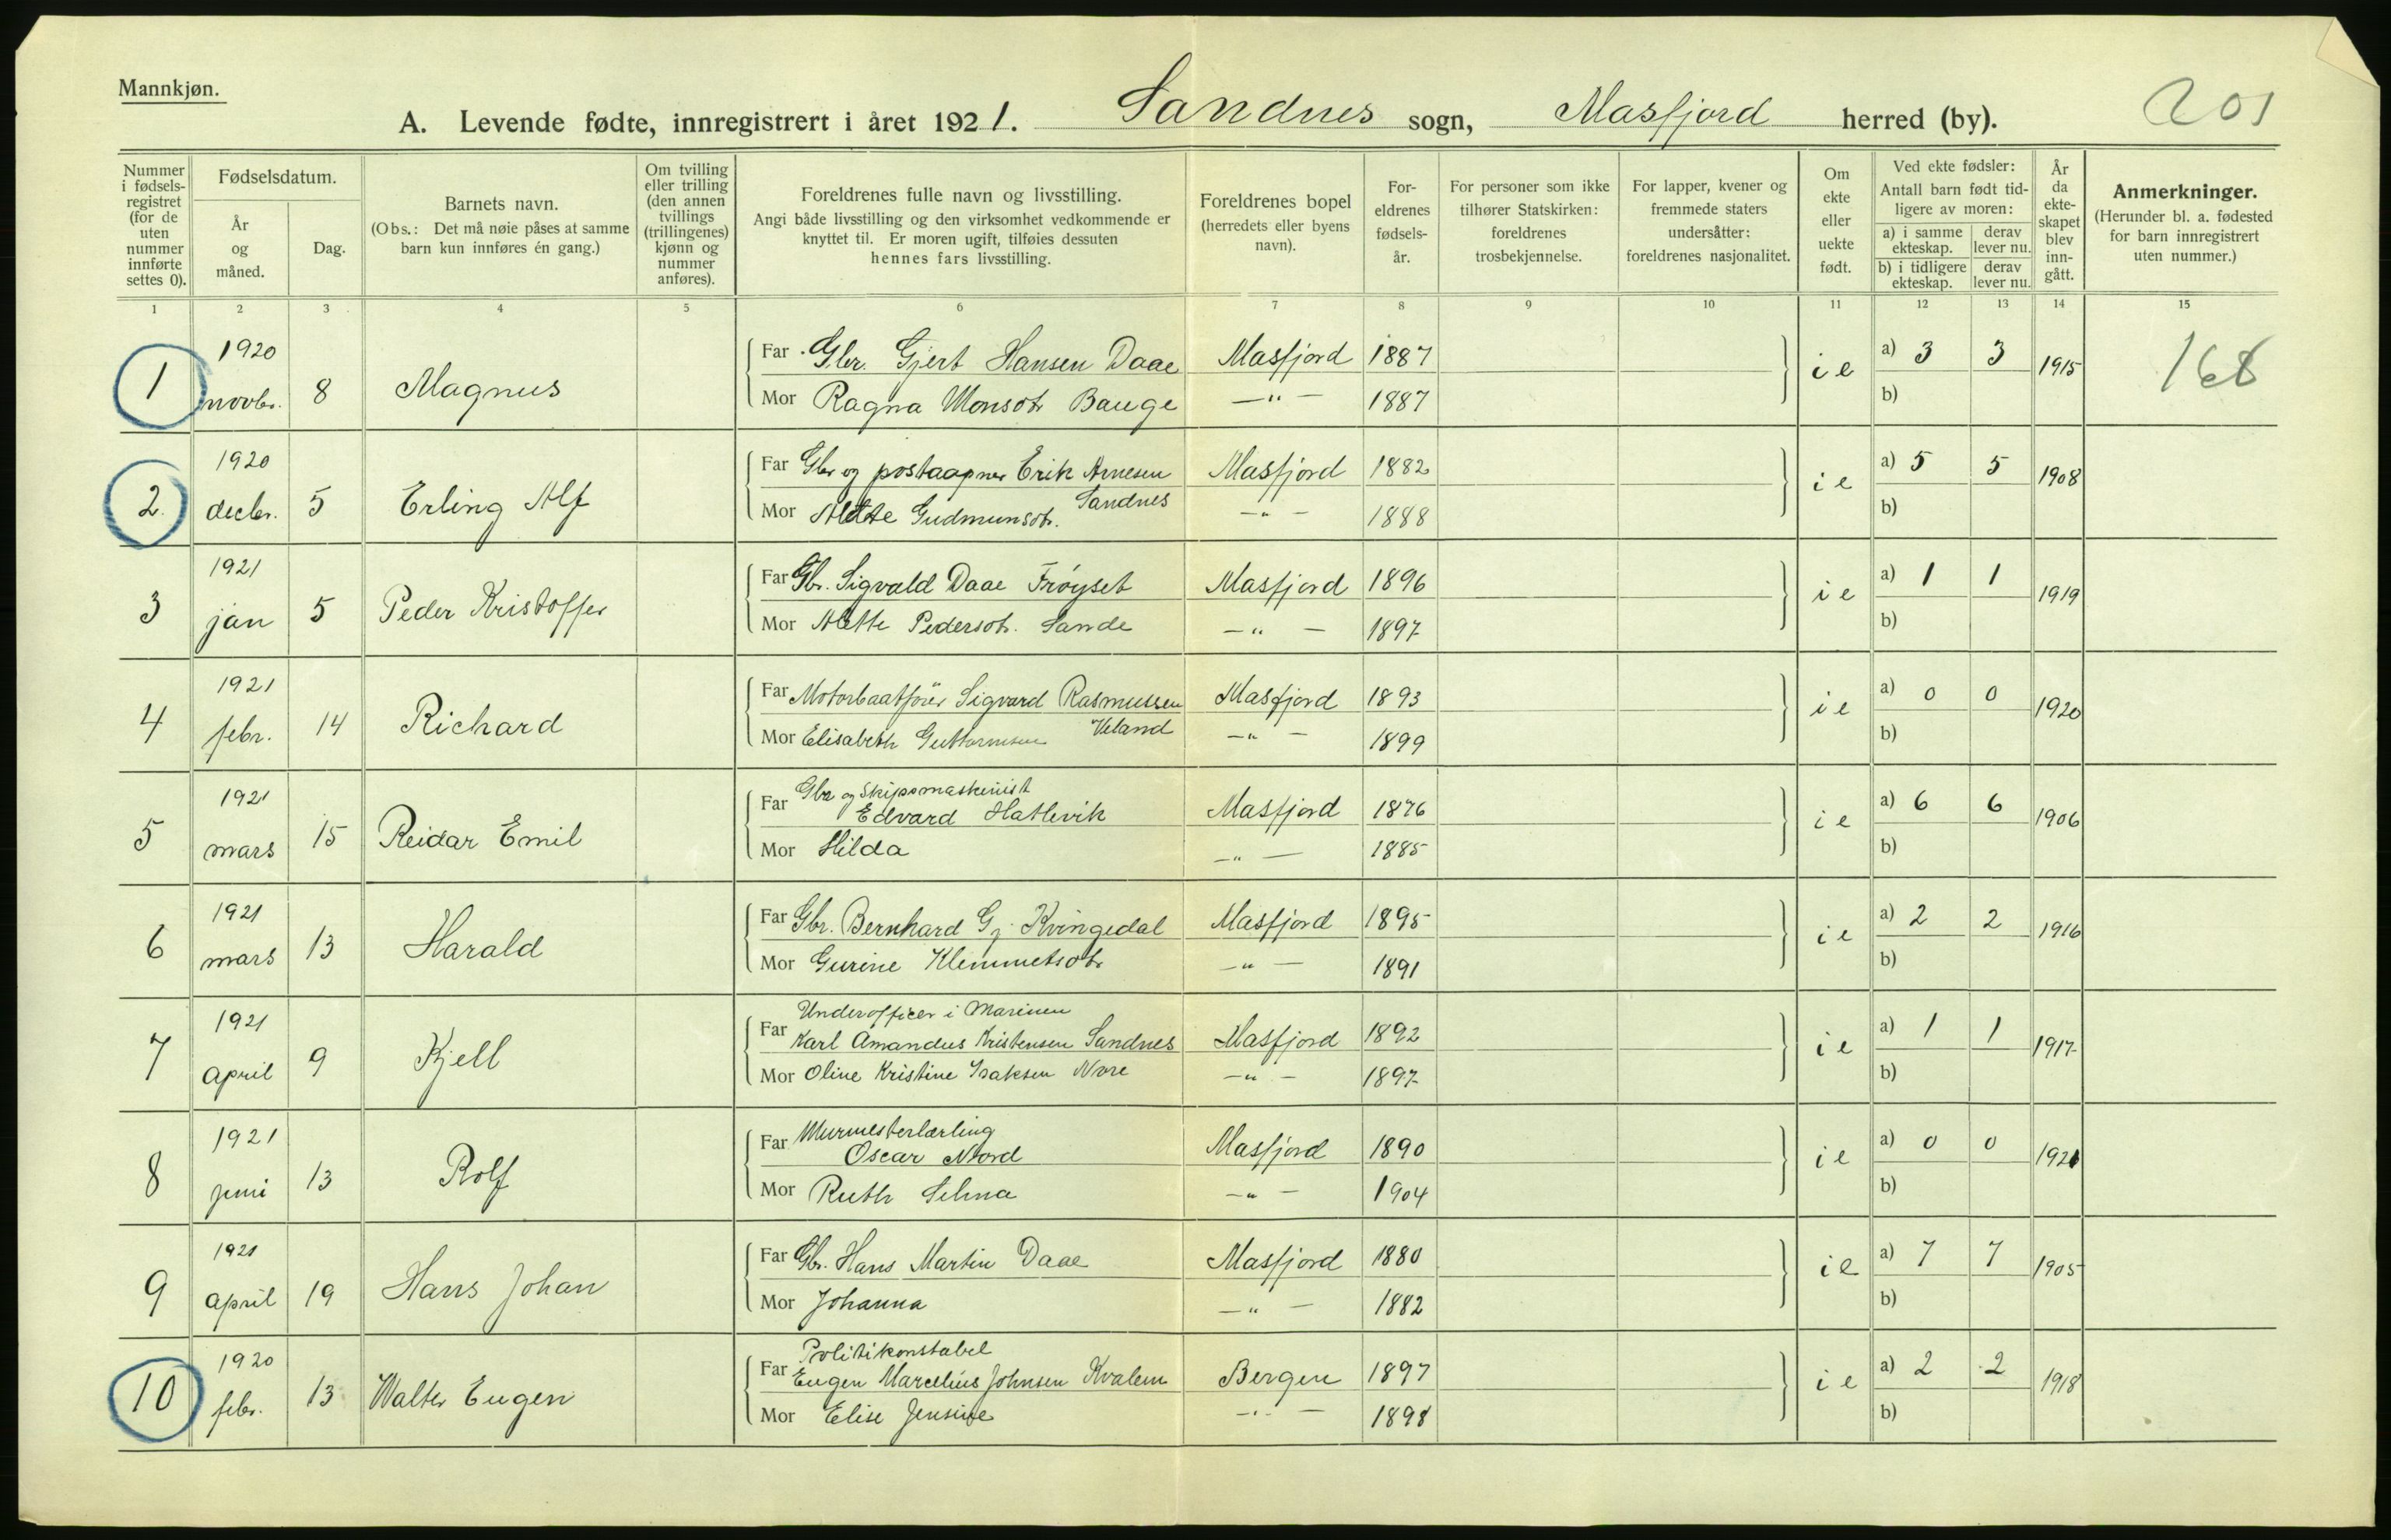 Mannkjøn.
A. Levende fødte, innregistrert i året 1921. Sandnes sogn, Masfjord herred (by). 201
Nummer i fødselsregistret (for de uten nummer innførte settes 0).
Fødselsdatum.
År og måned.
Dag.
Barnets navn.
(Obs.: Det må nøie påses at samme barn kun innføres én gang.)
Om tvilling eller trilling (den annen tvillings (trillingenes) kjønn og nummer anføres).
Foreldrenes fulle navn og livsstilling.
Angi både livsstilling og den virksomhet vedkommende er knyttet til. Er moren ugift, tilføies dessuten hennes fars livsstilling.
Foreldrenes bopel (herredets eller byens navn).
Foreldrenes fødselsår.
For personer som ikke tilhører Statskirken: foreldrenes trosbekjennelse.
For lapper, kvener og fremmede staters undersåtter: foreldrenes nasjonalitet.
Om ekte eller uekte født.
Ved ekte fødsler:
Antall barn født tidligere av moren:
a) i samme ekteskap. derav lever nu.
b) i tidligere ekteskap. derav lever nu.
År da ekteskapet blev inngått.
Anmerkninger.
(Herunder bl. a. fødested for barn innregistrert uten nummer.)
1 2 3 4 5 6 7 8 9 10 11 12 13 14 15
1 1920 novbr. 8 Magnus
Far Gbr. Gjert Hansen Daae Masfjord 1887 i e a) 3 3 1915 168
Mor Ragna Monsdtr Bauge —"— 1887 b)
2. 1920 decbr. 5 Erling Alf
Far Gbr og postaapner Erik Arnesen Sandnes Masfjord 1882 i e a) 5 5 1908
Mor Gudmunsdtr. —"— 1888 b)
3 1921 jan 5 Peder Kristoffer
Far Gbr. Sigvald Daae Frøyset Masfjord 1896 i e a) 1 1 1919
Mor Alette Pedersdtr. Sande —"— 1897 b)
4 1921 febr. 14 Richard
Far Motorbaatfører Sigvard Rasmussen Veland Masfjord 1893 i e a) 0 0 1920
Mor Elisabeth Guttormsen —"— 1899 b)
5 1921 mars 15 Reidar Emil
Far Gbr og Skipsmaskinist Edvard Hatlevik Masfjord 1876 i e a) 6 6 1906
Mor Hilda —"— 1885 b)
6 1921 mars 13 Harald
Far Gbr. Bernhard Gj. Kvingedal Masfjord 1895 i e a) 2 2 1916
Mor Gurine Klemmetsdtr —"— 1891 b)
7 1921 april 9 Kjell
Far Underofficer i Marinen Karl Amandus Kristensen Sandnes Masfjord 1892 i e a) 1 1 1917
Mor Oline Kristine Isaksen —"— 1897 b)
8 1921 juni 13 Rolf
Far Murmesterlærling Oscar Masfjord 1890 i e a) 0 0 1921
Mor Ruth Selma —"— 1904 b)
9 1921 april 19 Hans Johan
Far Gbr. Hans Martin Daae Masfjord 1880 i e a) 7 7 1905
Mor Johanna —"— 1882 b)
10 1920 febr. 13 Walter Eugen
Far Politikonstabel Eugen Marcelius Johnsen Kvalem Bergen 1897 i e a) 2 2 1918
Mor Elise Jensine —"— 1898 b)